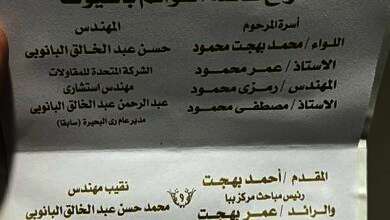 أسرة المرحوم
اللواء / محمد بهجت محمود
الاستاذ / عمر محمــود
المهندس / رمزى محمود
الاستاذ / مصطفى محمود
المهندس
حسن عبد الخالق البانوبى
الشركة المتحدة للمقاولات
مهندس استشارى
عبد الرحمن عبد الخالق البانوبى
مدير عام رى البحيرة (سابقا)
المقدم / أحمد بهجت
رئيس مباحث مركز ببا
والرائد / عمر بهجت
نقيب مهندس
محمد حسن عبد الخالق البانوبى